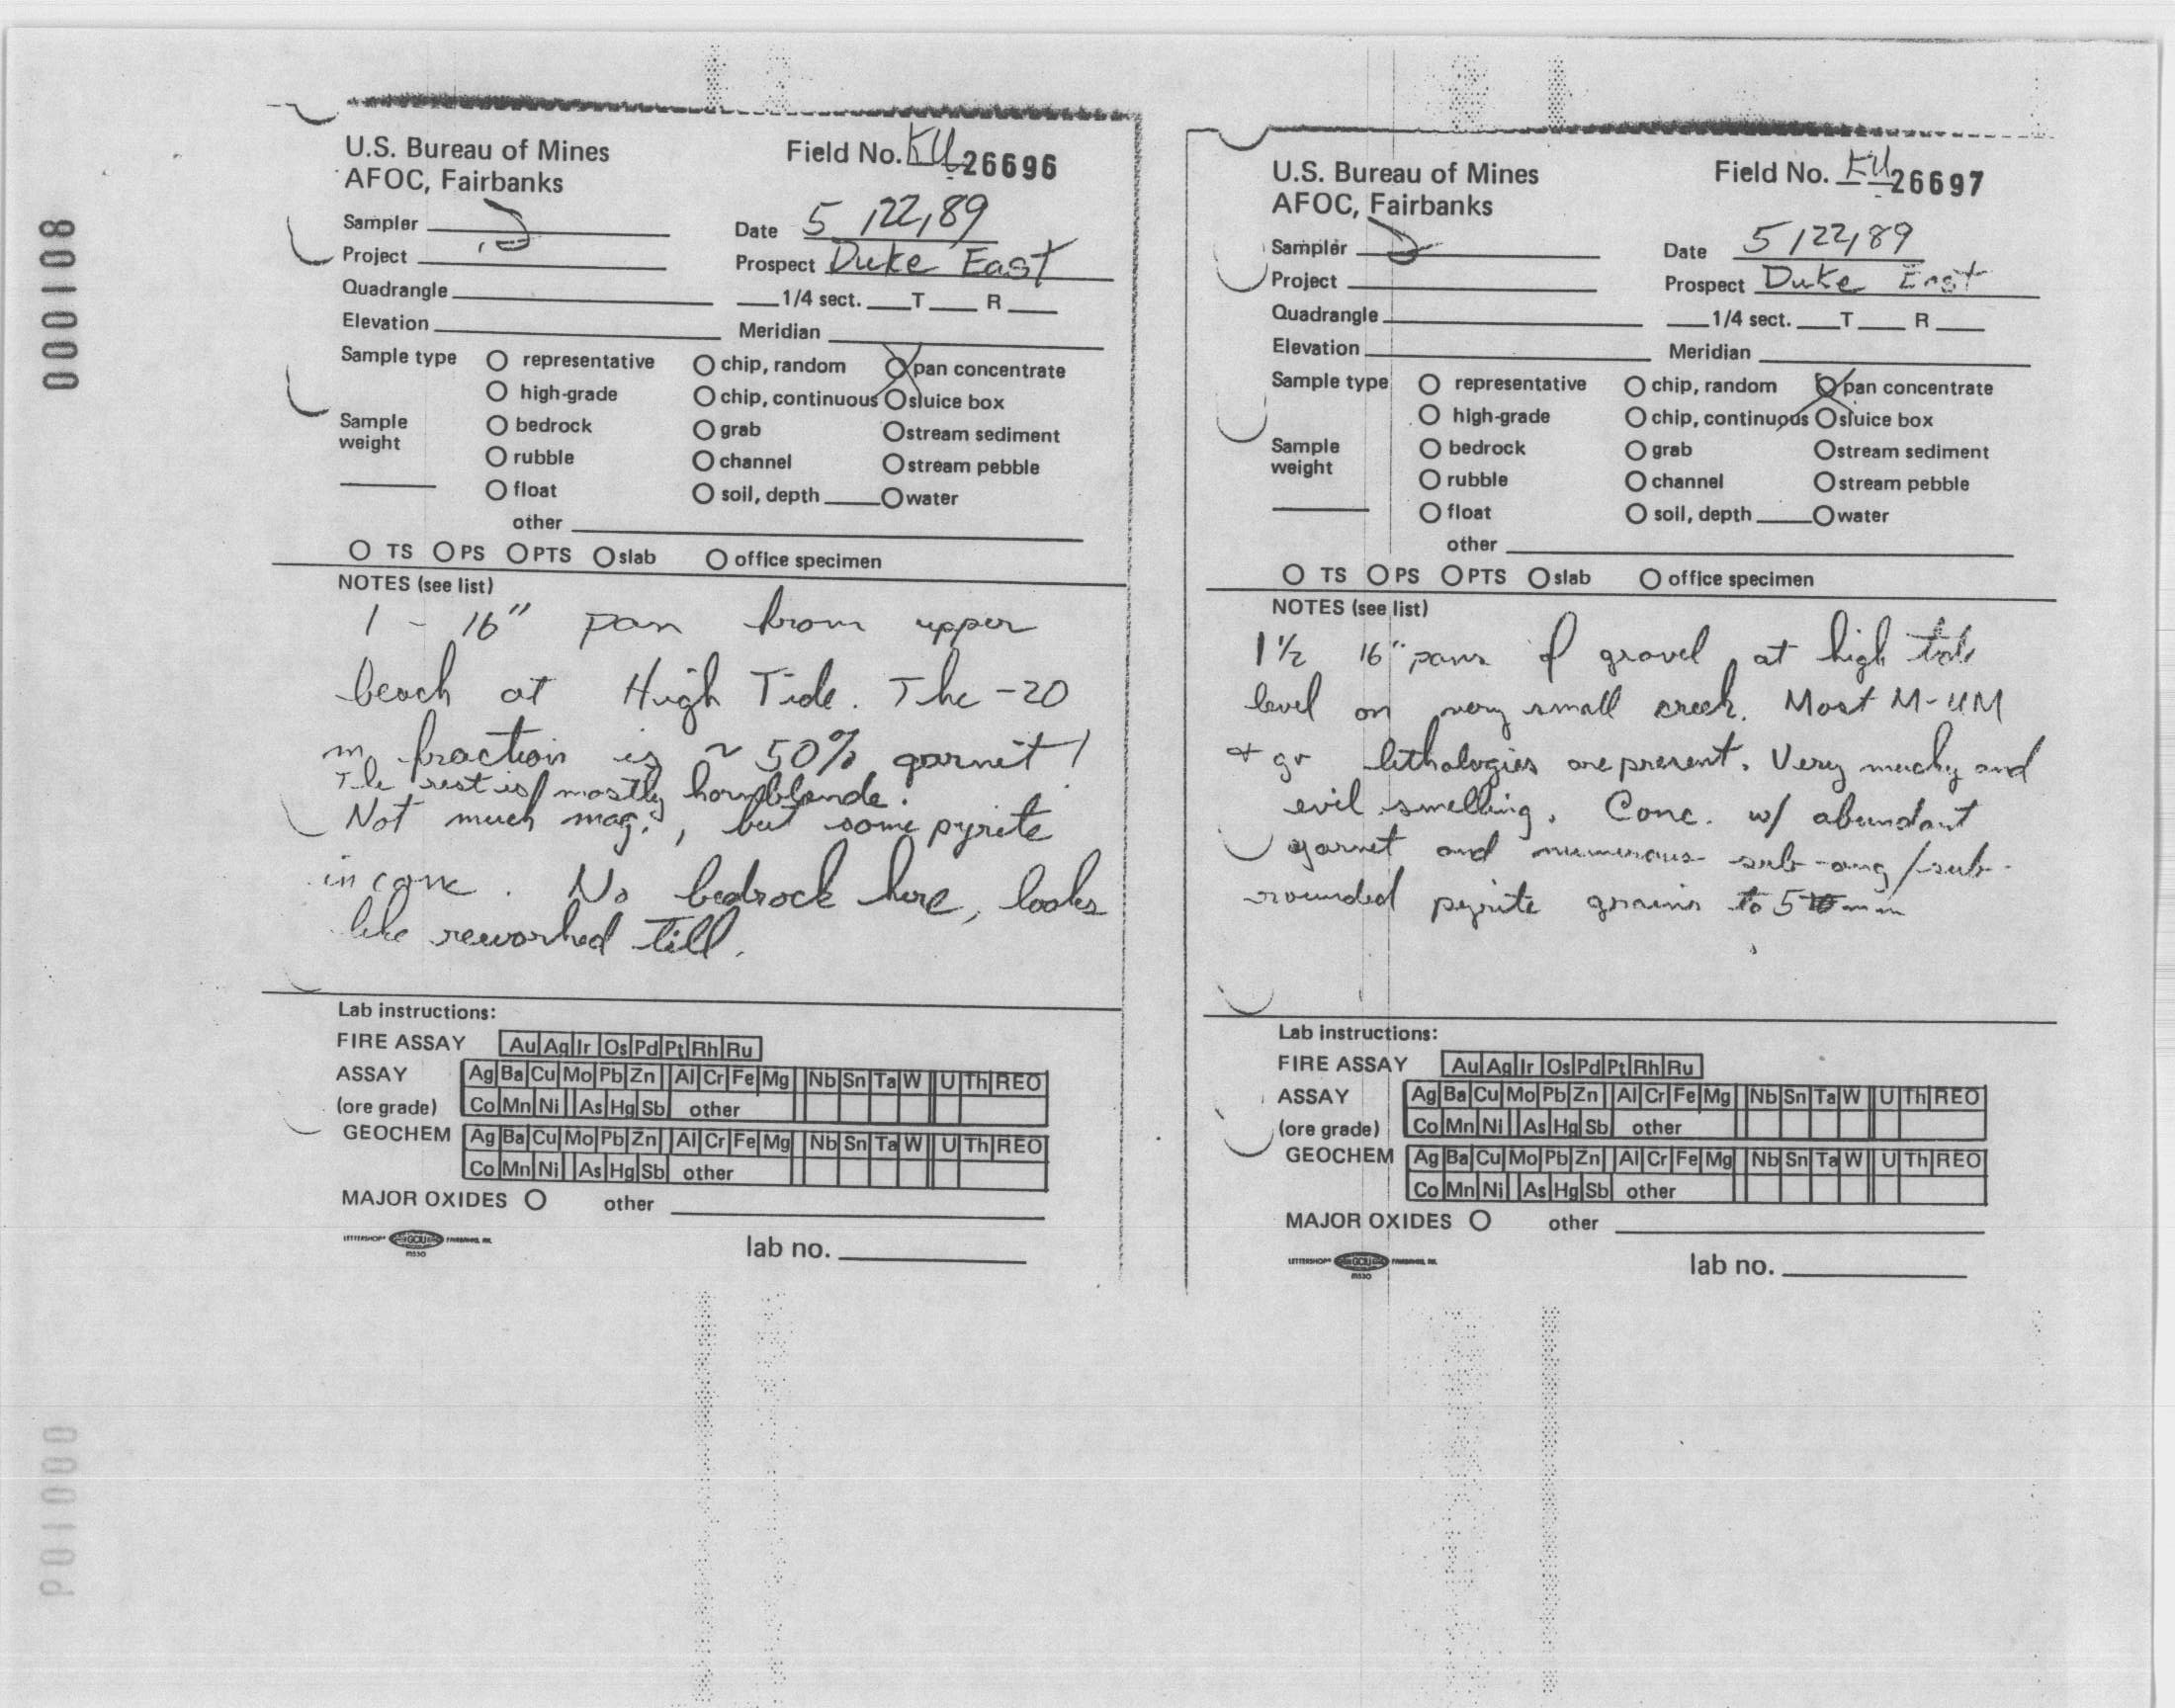 000108
U.S. Bureau of Mines
AFOC, Fairbanks
Field No. KU 26696
Sampler
Date 5/22/89
Project
Prospect Duke East
Quadrangle
1/4 sect. T R
Elevation
Meridian
Sample type O representative O chip, random O pan concentrate
O high-grade O chip, continuous O sluice box
Sample weight O bedrock O grab O stream sediment
O rubble O channel O stream pebble
O float O soil, depth O water
other
O TS O PS O PTS O slab O office specimen
NOTES (see list)
1 - 16" pan from upper
beach at High Tide. The -20
m fraction is ~ 50% garnet!
The rest is mostly hornblende.
Not much mag., but some pyrite
in conc. No bedrock here, looks
like reworked till.
Lab instructions:
FIRE ASSAY Au Ag Ir Os Pd Pt Rh Ru
ASSAY Ag Ba Cu Mo Pb Zn Al Cr Fe Mg Nb Sn Ta W U Th REO
(ore grade) Co Mn Ni As Hg Sb other
GEOCHEM Ag Ba Cu Mo Pb Zn Al Cr Fe Mg Nb Sn Ta W U Th REO
Co Mn Ni As Hg Sb other
MAJOR OXIDES O other
LETTERSHOP GCIU
lab no.
U.S. Bureau of Mines
AFOC, Fairbanks
Field No. KU 26697
Sampler
Date 5/22/89
Project
Prospect Duke East
Quadrangle
1/4 sect. T R
Elevation
Meridian
Sample type O representative O chip, random O pan concentrate
O high-grade O chip, continuous O sluice box
Sample weight O bedrock O grab O stream sediment
O rubble O channel O stream pebble
O float O soil, depth O water
other
O TS O PS O PTS O slab O office specimen
NOTES (see list)
1 1/2 16" pans of gravel at high tide
level on very small creek. Most M-UM
+ gr lithologies are present. Very mucky and
evil smelling. Conc. w/ abundant
garnet and numerous sub-ang/sub-
rounded pyrite grains to 5 mm
Lab instructions:
FIRE ASSAY Au Ag Ir Os Pd Pt Rh Ru
ASSAY Ag Ba Cu Mo Pb Zn Al Cr Fe Mg Nb Sn Ta W U Th REO
(ore grade) Co Mn Ni As Hg Sb other
GEOCHEM Ag Ba Cu Mo Pb Zn Al Cr Fe Mg Nb Sn Ta W U Th REO
Co Mn Ni As Hg Sb other
MAJOR OXIDES O other
LETTERSHOP GCIU
lab no.